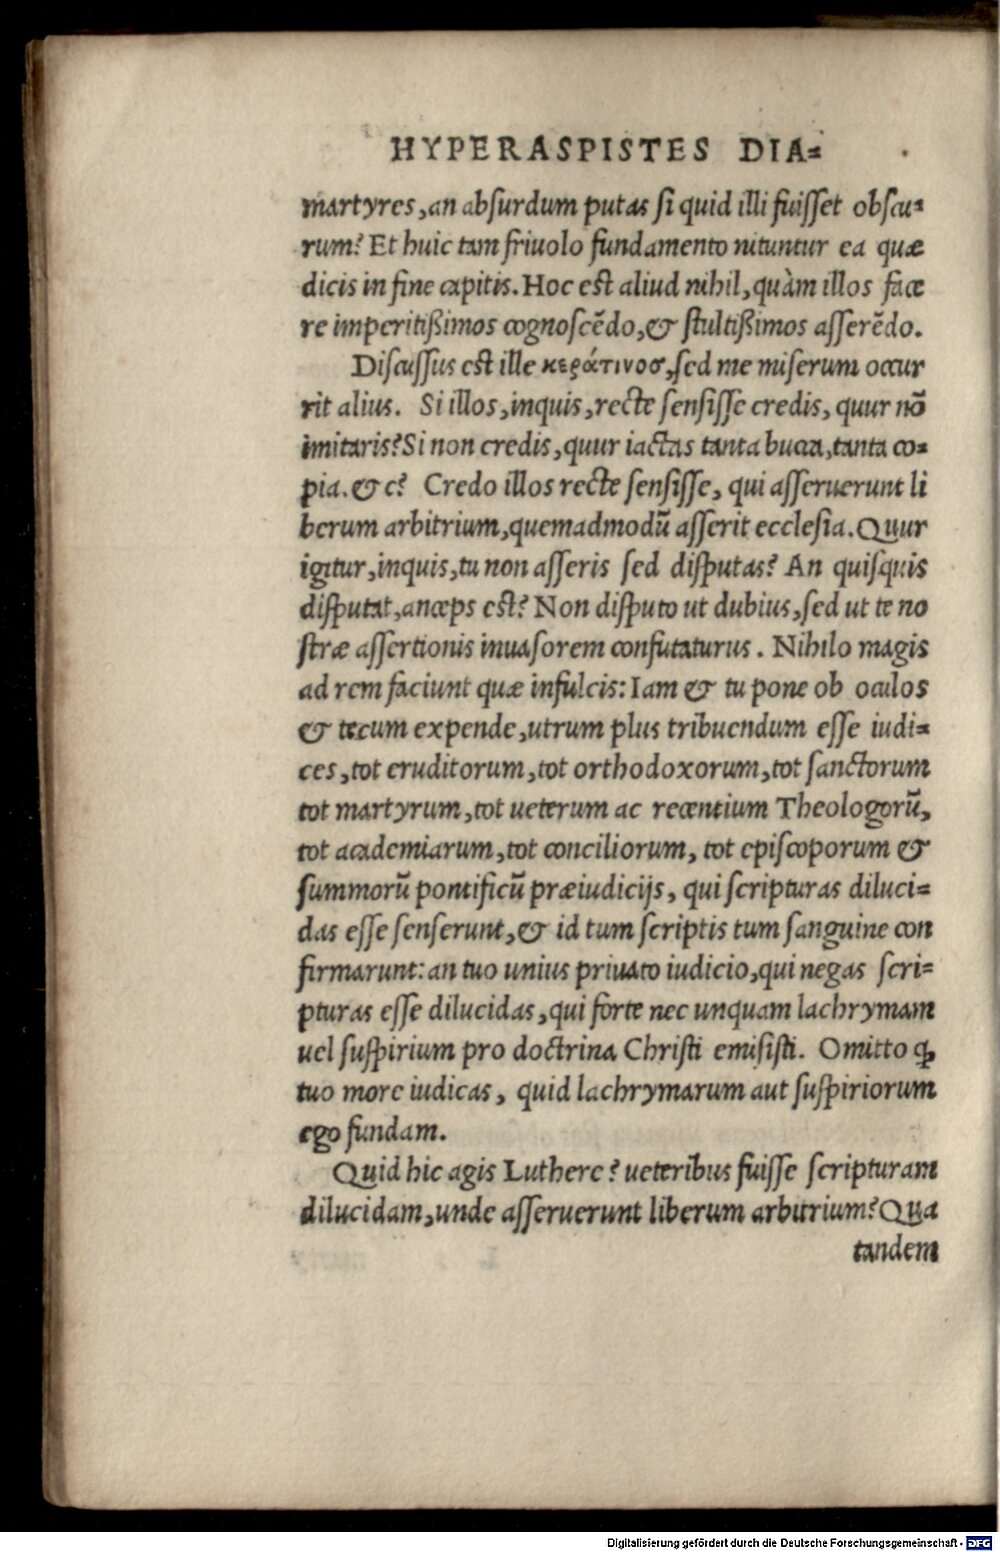 HYPERASPISTES DIA⸗
martyres, an absurdum putas si quid illi fuisset obscu⸗
rum? Et huic tam friuolo fundamento nituntur ea quæ
dicis in fine capitis. Hoc est aliud nihil, quàm illos face
re imperitißimos cognoscẽdo, & stultißimos asserẽdo.
Discussus est ille κεράτινοσ, sed me miserum occur
rit alius. Si illos, inquis, recte sensisse credis, quur nõ
imitaris? Si non credis, quur iactas tanta bucca, tanta co⸗
pia. &c? Credo illos recte sensisse, qui asseruerunt li
berum arbitrium, quemadmodũ asserit ecclesia. Quur
igitur, inquis, tu non asseris sed disputas? An quisquis
disputat, anceps est? Non disputo ut dubius, sed ut te no
stræ assertionis inuasorem confutaturus. Nihilo magis
ad rem faciunt quæ infulcis: Iam & tu pone ob oculos
& tecum expende, utrum plus tribuendum esse iudi⸗
ces, tot eruditorum, tot orthodoxorum, tot sanctorum
tot martyrum, tot ueterum ac recentium Theologorũ,
tot academiarum, tot conciliorum, tot episcoporum &
summorũ pontificũ præiudicijs, qui scripturas diluci⸗
das esse senserunt, & id tum scriptis tum sanguine con
firmarunt: an tuo unius priuato iudicio, qui negas scri⸗
pturas esse dilucidas, qui forte nec unquam lachrymam
uel suspirium pro doctrina Christi emisisti. Omitto ꝙ
tuo more iudicas, quid lachrymarum aut suspiriorum
ego fundam.
Quid hic agis Luthere? ueteribus fuisse scripturam
dilucidam, unde asseruerunt liberum arbitrium? Qua
tandem
Digitalisierung gefördert durch die Deutsche Forschungsgemeinschaft - DFG